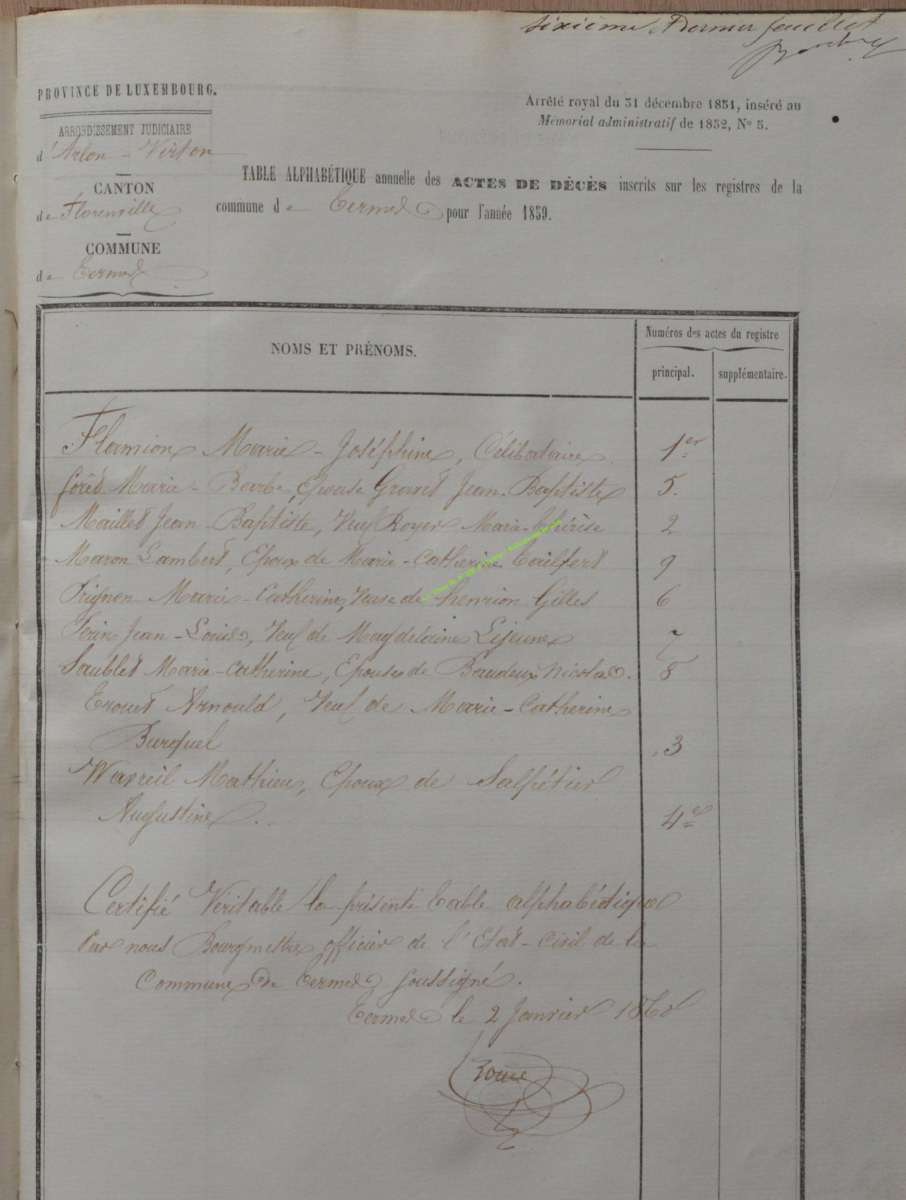 sixième & Dernier feuillet
PROVINCE DE LUXEMBOURG.
Arrêté royal du 31 décembre 1831, inséré au
Mémorial administratif de 1832, Nº 5.
ARRONDISSEMENT JUDICIAIRE
d'Arlon - Virton
CANTON
de Florenville
COMMUNE
de Termes
TABLE ALPHABÉTIQUE annuelle des ACTES DE DÉCÈS inscrits sur les registres de la
commune de Termes pour l'année 1859.
NOMS ET PRÉNOMS.
Numéros des actes du registre
principal. supplémentaire.
Flamion Marie-Joséphine, Célibataire 1er
Marie-Barbe, Epouse Jean-Baptiste 5.
Maillet Jean-Baptiste, Veuf Royer Marie-Thérèse 2
Maron Lambert, Epoux de Marie-Catherine Tailfert 9
Pignon Marie-Catherine, Veuve de henrion Gilles 6
Jean-Louis, Veuf de Magdelaine Lejeune 7
Saublet Marie-catherine, Epouse de Baudeux Nicolas. 8
Arnould, Veuf de Marie-Catherine
Burquel 3
Mathieu, Epoux de Salpétier
Augustine. 4e
Certifié Véritable la présente table alphabétique
Par nous Bourgmestre officier de l'Etat-Civil de la
Commune de Termes soussigné.
Termes le 2 Janvier 1860